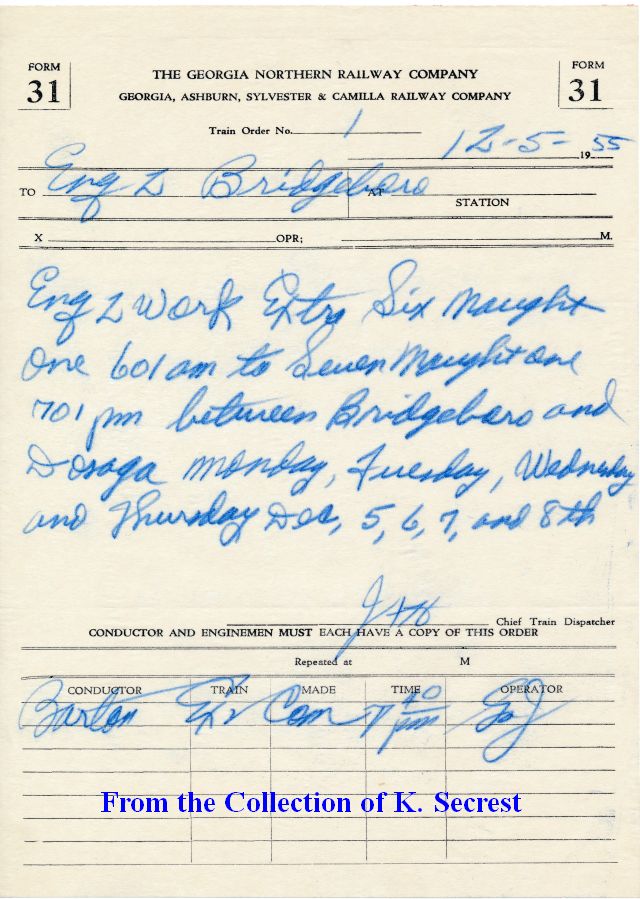 FORM 31
THE GEORGIA NORTHERN RAILWAY COMPANY
FORM 31
GEORGIA, ASHBURN, SYLVESTER & CAMILLA RAILWAY COMPANY
Train Order No. 1
12-5- 1955
TO Eng 2 Bridgeboro AT
STATION
X OPR; M.
Eng 2 Work Extra Six Naught
One 601 am to Seven Naught one
701 pm between Bridgeboro and
Doraga Monday, Tuesday, Wednesday
and Thursday Dec, 5, 6, 7, and 8th
Chief Train Dispatcher
CONDUCTOR AND ENGINEMEN MUST EACH HAVE A COPY OF THIS ORDER
Repeated at M
CONDUCTOR TRAIN MADE TIME OPERATOR
Barton Ex Com 7 40 pm
From the Collection of K. Secrest